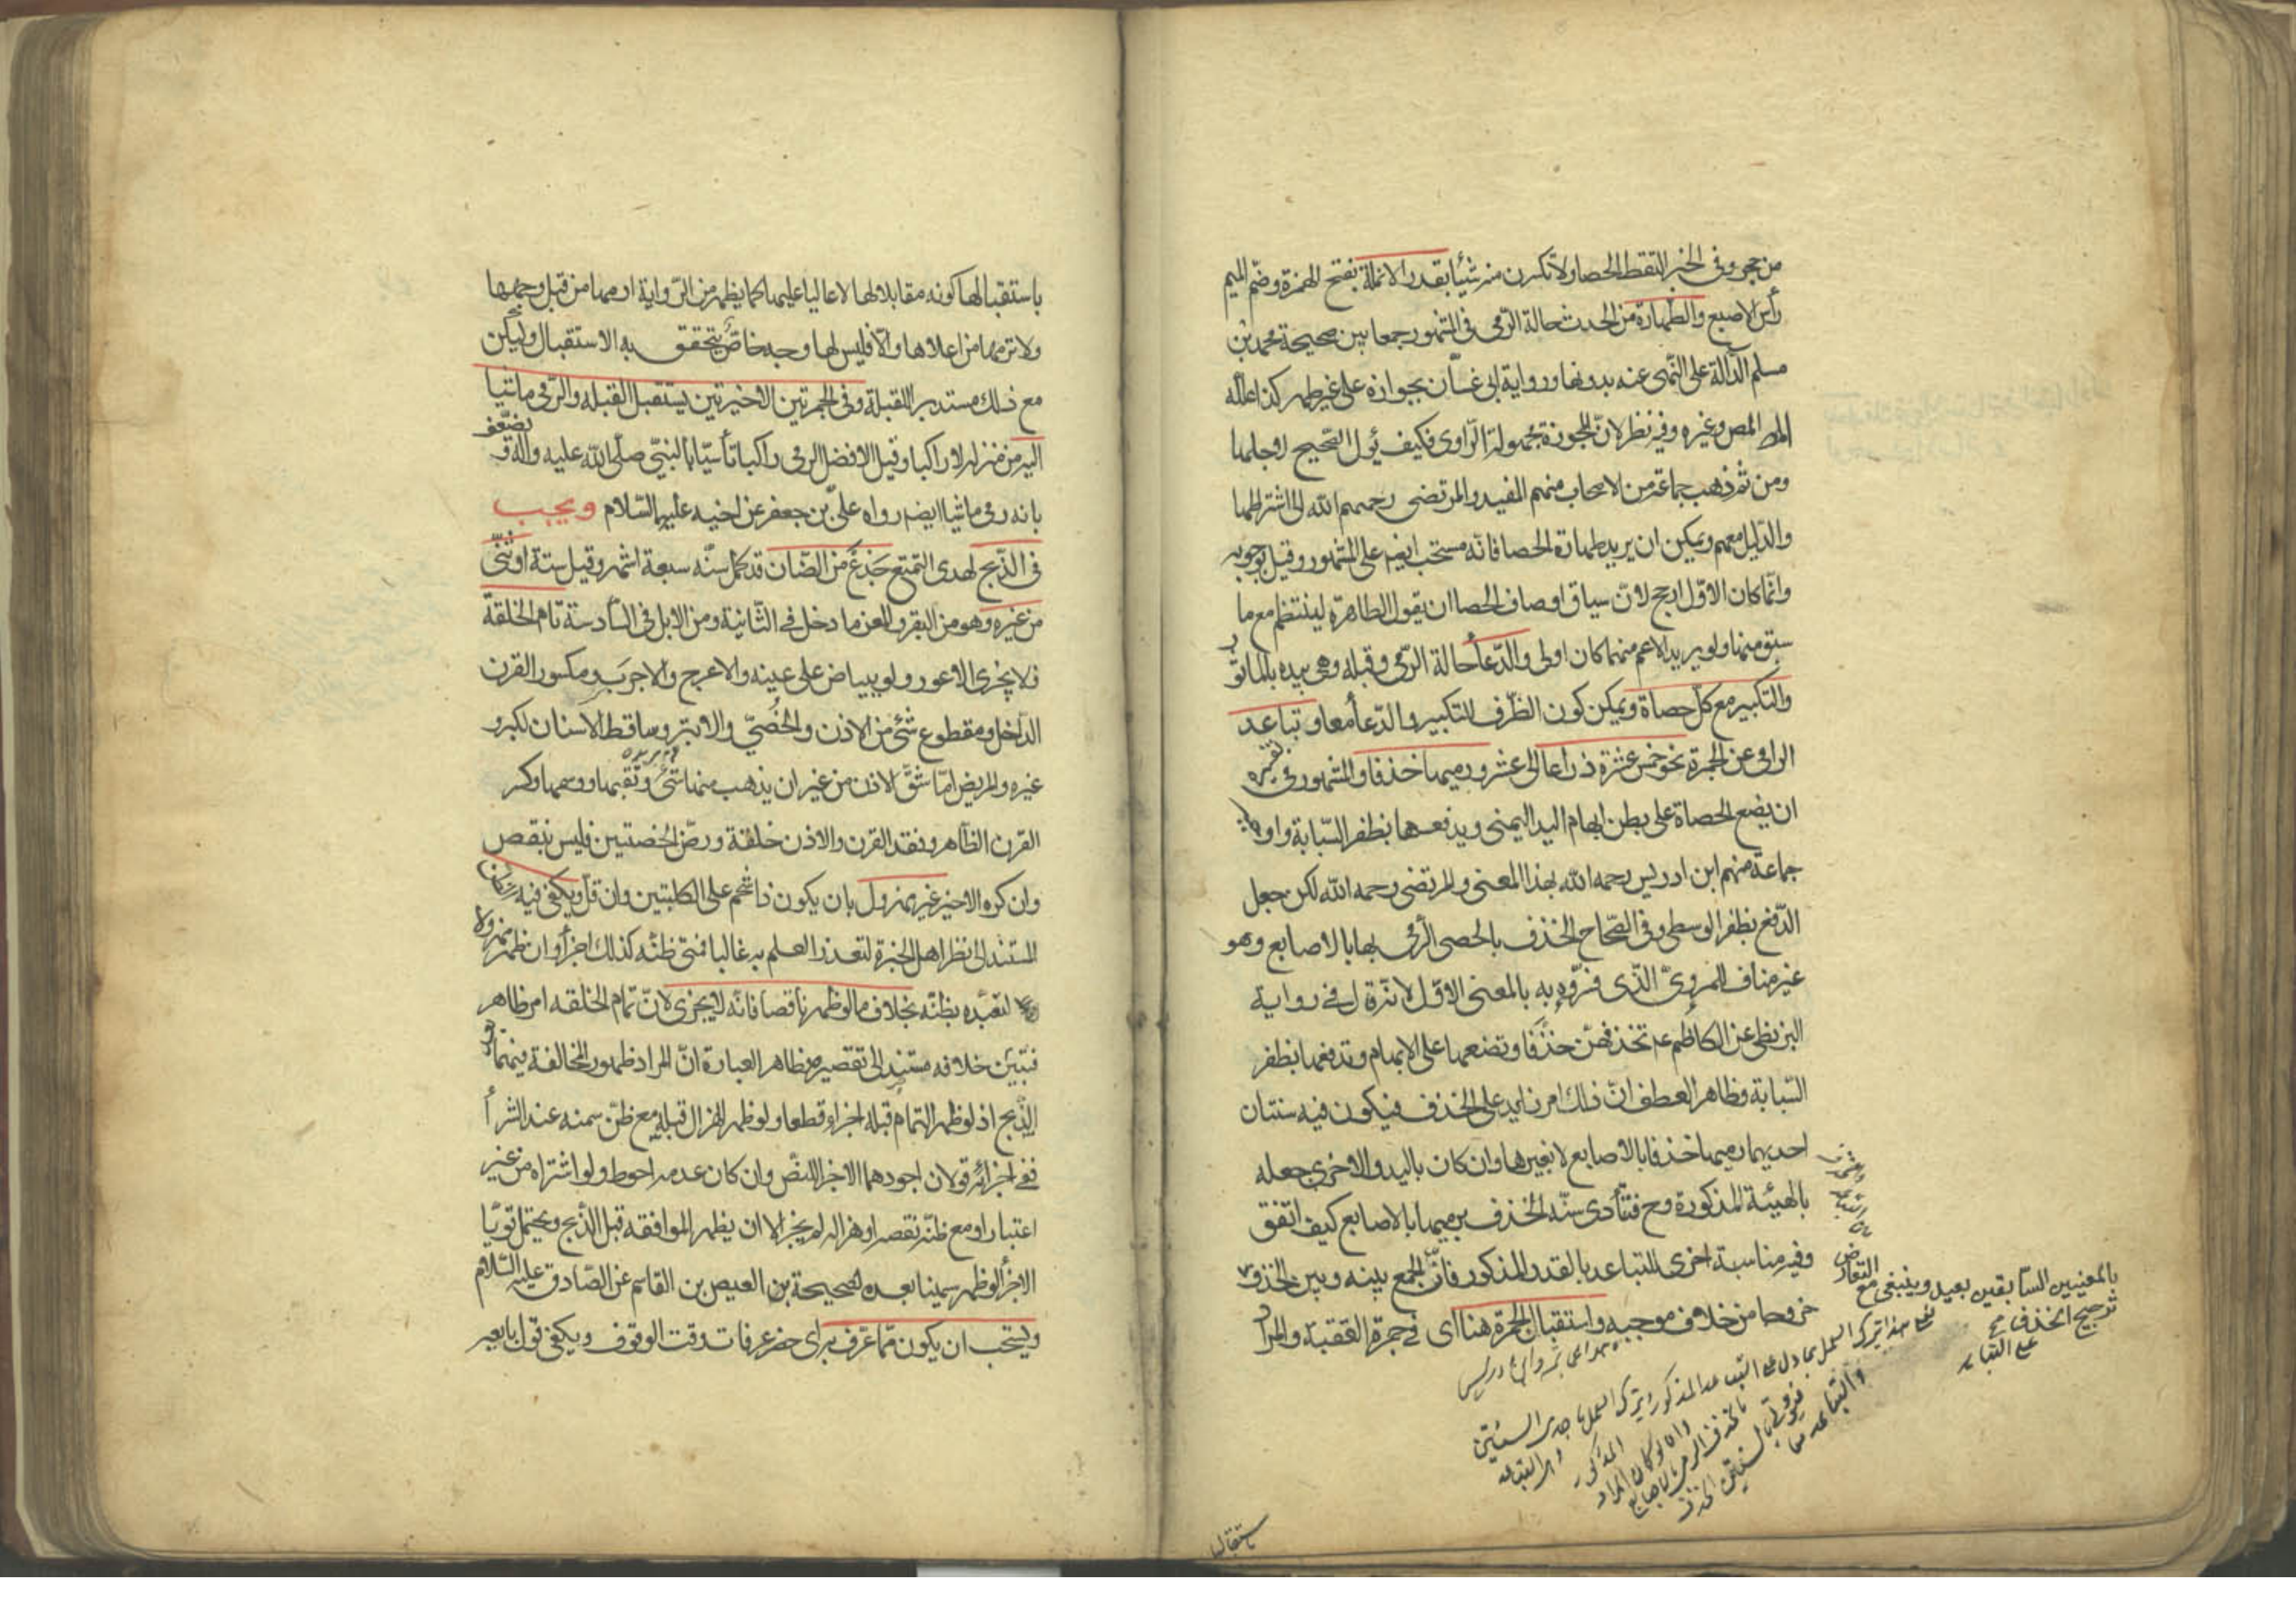 من حجر وفى الخبر التقط الحصا ولا تكسرن منه شيئا بقدر الانملة بفتح الهمزة وضم الميم
رأس الاصبع والطهارة من الحدث حالة الرمى فى المشهور جمعا بين صحيحة محمد بن
مسلم الدالة على النهى عنه بدونها ورواية ابى غسان بجوازه على غير طهر كذا علله
المص وغيره وفيه نظر لان المجوزة مجهولة الراوى فكيف يؤل الصحيح لاجلها
ومن ثم ذهب جماعة من الاصحاب منهم المفيد والمرتضى رحمهم الله الى اشتراطها
والدليل معهم ويمكن ان يريد طهارة الحصا فانه مستحب ايضا على المشهور وقيل بوجوبه
وانما كان الاول ارجح لان سياق اوصاف الحصا ان يقول الطاهرة لينتظم مع ما
سبق منها ولو يريد الاعم منهما كان اولى والدعأ حالة الرمى وقبله وهى بيده بالماثور
والتكبير مع كل حصاة ويمكن كون الظرف للتكبير والدعأ معا وتباعد
الرامى عن الجمرة نحو خمس عشرة ذراعا الى عشر ورميها خذفا والمشهور فى تفسيره
ان يضع الحصاة على بطن ابهام اليد اليمنى ويدفعها بظفر السبابة واوجبه
جماعة منهم ابن ادريس رحمه الله بهذا المعنى والمرتضى رحمه الله لكن جعل
الدفع بظفر الوسطى وفى الصحاح الخذف بالحصى الرمى بها بالاصابع وهو
غير مناف للمروى الذى فسروه به بالمعنى الاول لانه قال فى رواية
البزنطى عن الكاظم ع تخذفهن خذفا وتضعها على الابهام وتدفعها بظفر
السبابة وظاهر العطف ان ذلك امر زايد على الخذف فيكون فيه سنتان
احديهما رميها خذفا بالاصابع لا بغيرها وان كان باليد والاخرى جعله
بالهيئة المذكورة وح فتتأدى سنه الخذف برميها بالاصابع كيف اتفق
وفيه مناسبة اخرى للتباعد بالقدر المذكور فان الجمع بينه وبين الخذف
خروجا من خلاف موجبه واستقبال الجمرة هنا اى فى جمرة العقبة والمراد
بالمعنيين السابقين بعيد وينبغى مع التعارض
ترجيح الخذف
على التباعد
باستقبالها كونه مقابلا لها لا عاليا عليها كما يظهر من الرواية ارمها من قبل وجهها
ولا ترمها من اعلاها والا فليس لها وجه خاص يتحقق به الاستقبال وليكن
مع ذلك مستدبر القبلة وفى الجمرتين الاخيرتين يستقبل القبله والرمى ماشيا
اليه من منزله لا راكبا وقيل الافضل الرمى راكبا تأسيا بالنبى صلى الله عليه واله ويضعف
بانه رمى ماشيا ايضا رواه على بن جعفر عن اخيه عليهما السلام ويجب
فى الذبح لهدى التمتع جذع من الضان قد كمل سنه سبعة اشهر وقيل ستة او ثنى
من غيره وهو من البقر والمعز ما دخل فى الثانية ومن الابل فى السادسة تام الخلقة
فلا يجزى الاعور ولو ببياض على عينه والاعرج والاجرب ومكسور القرن
الداخل ومقطوع شئ من الاذن والخصى والابتر وساقط الاسنان لكبر و
غيره والمريض اما شق الاذن من غير ان يذهب منها شئ وثقبها ووسمها وكسر
القرن الظاهر وفقد القرن والاذن خلقة ورض الخصتين فليس بنقص
وان كره الاخير غير مهزول بان يكون ذا شحم على الكليتين وان قل ويكفى فيه الظن
المستند الى نظر اهل الخبرة لتعذر العلم به غالبا فمتى ظنه كذلك اجزأ وان ظهر مهزولا
لتعبده بظنه بخلاف ما لو ظهر ناقصا فانه لا يجزى لان تمام الخلقه امر ظاهر
فتبين خلافه مستند الى تقصيره وظاهر العبارة ان المراد ظهور المخالفة فيهما بعد
الذبح اذ لو ظهر التمام قبله اجزاء قطعا ولو ظهر الهزال قبله مع ظن سمنه عند الشرأ
ففى اجزائه قولان اجودهما الاجزأ للنص وان كان عدمه احوط ولو اشتراه من غير
اعتبار او مع ظنه نقصه او هزاله لم يجز الا ان يظهر الموافقه قبل الذبح ويحتمل قويا
الاجزأ لو ظهر سمينا بعده لصحيحة بن العيص بن القاسم عن الصادق عليه السلام
ويستحب ان يكون مما عرف به اى حضر عرفات وقت الوقوف ويكفى قول بايعه